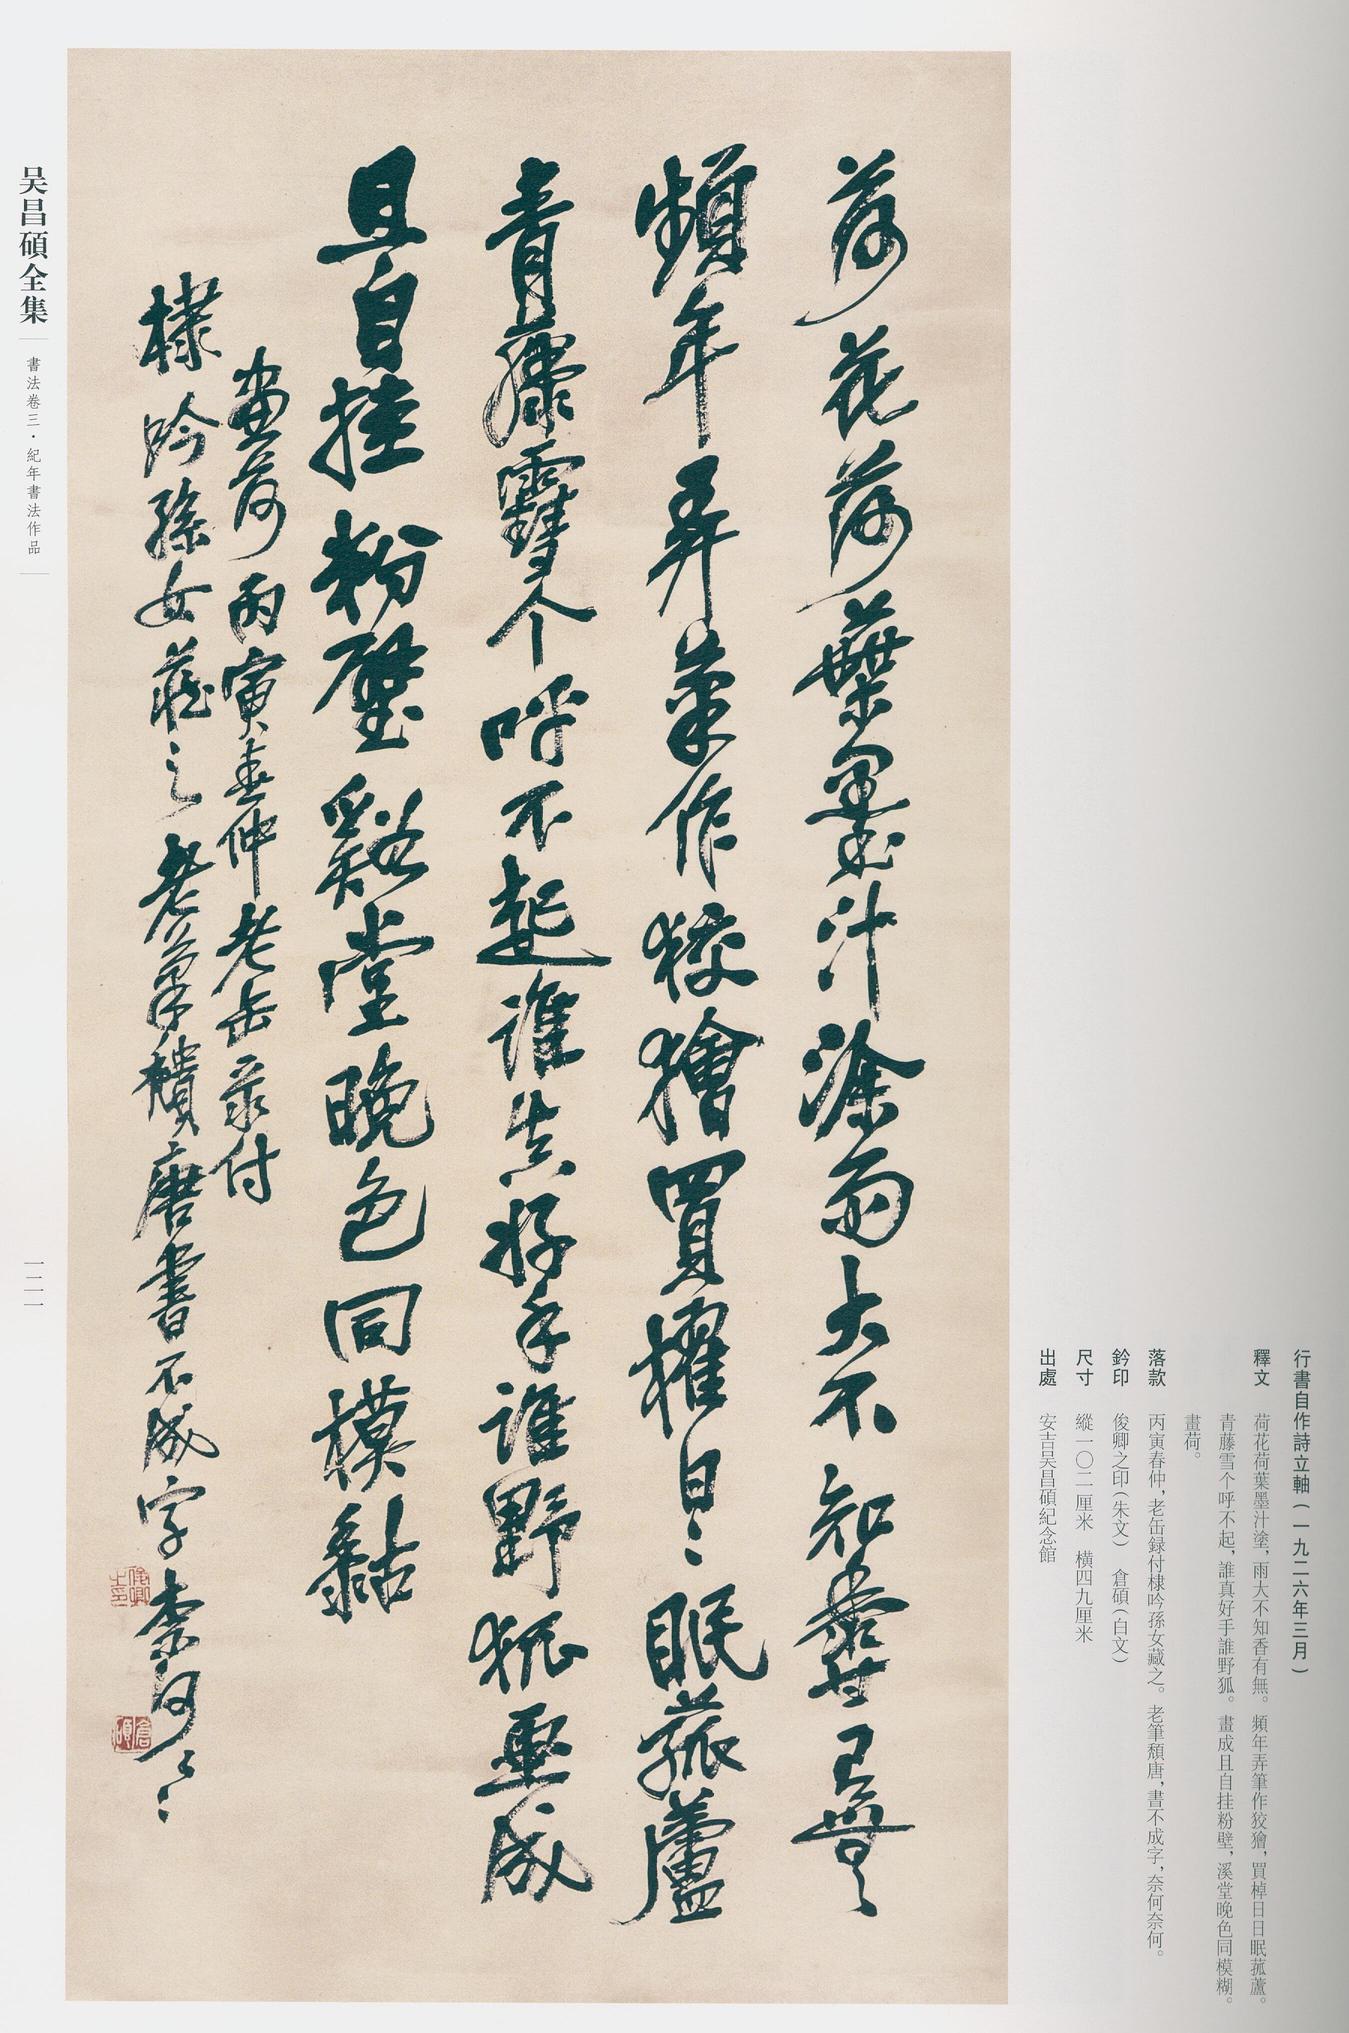 行書自作詩立軸（一九二六年三月）
釋文　荷花荷葉墨汁塗，雨大不知香有無。頻年弄筆作狡獪，買棹日日眠菰蘆。
青藤雪个呼不起，誰真好手誰野狐。畫成且自挂粉壁，溪堂晚色同模糊。
畫荷。
落款　丙寅春仲，老缶録付棣吟孫女藏之。老筆頹唐，書不成字，奈何奈何。
鈐印　俊卿之印（朱文）　倉碩（白文）
尺寸　縱一〇二厘米　橫四九厘米
出處　安吉吴昌碩紀念館
荷花荷葉墨汁塗雨大不知香有無
頻年弄筆作狡獪買櫂日〻眠菰蘆
青藤雪个呼不起誰真好手誰野狐畫成
且自挂粉壁谿堂晚色同模黏
畫荷丙寅春仲老缶录付
棣吟孫女藏之老筆穨唐書不成字奈何〻〻
俊卿之印
倉碩
吴昌碩全集
書法卷三·紀年書法作品
一二一